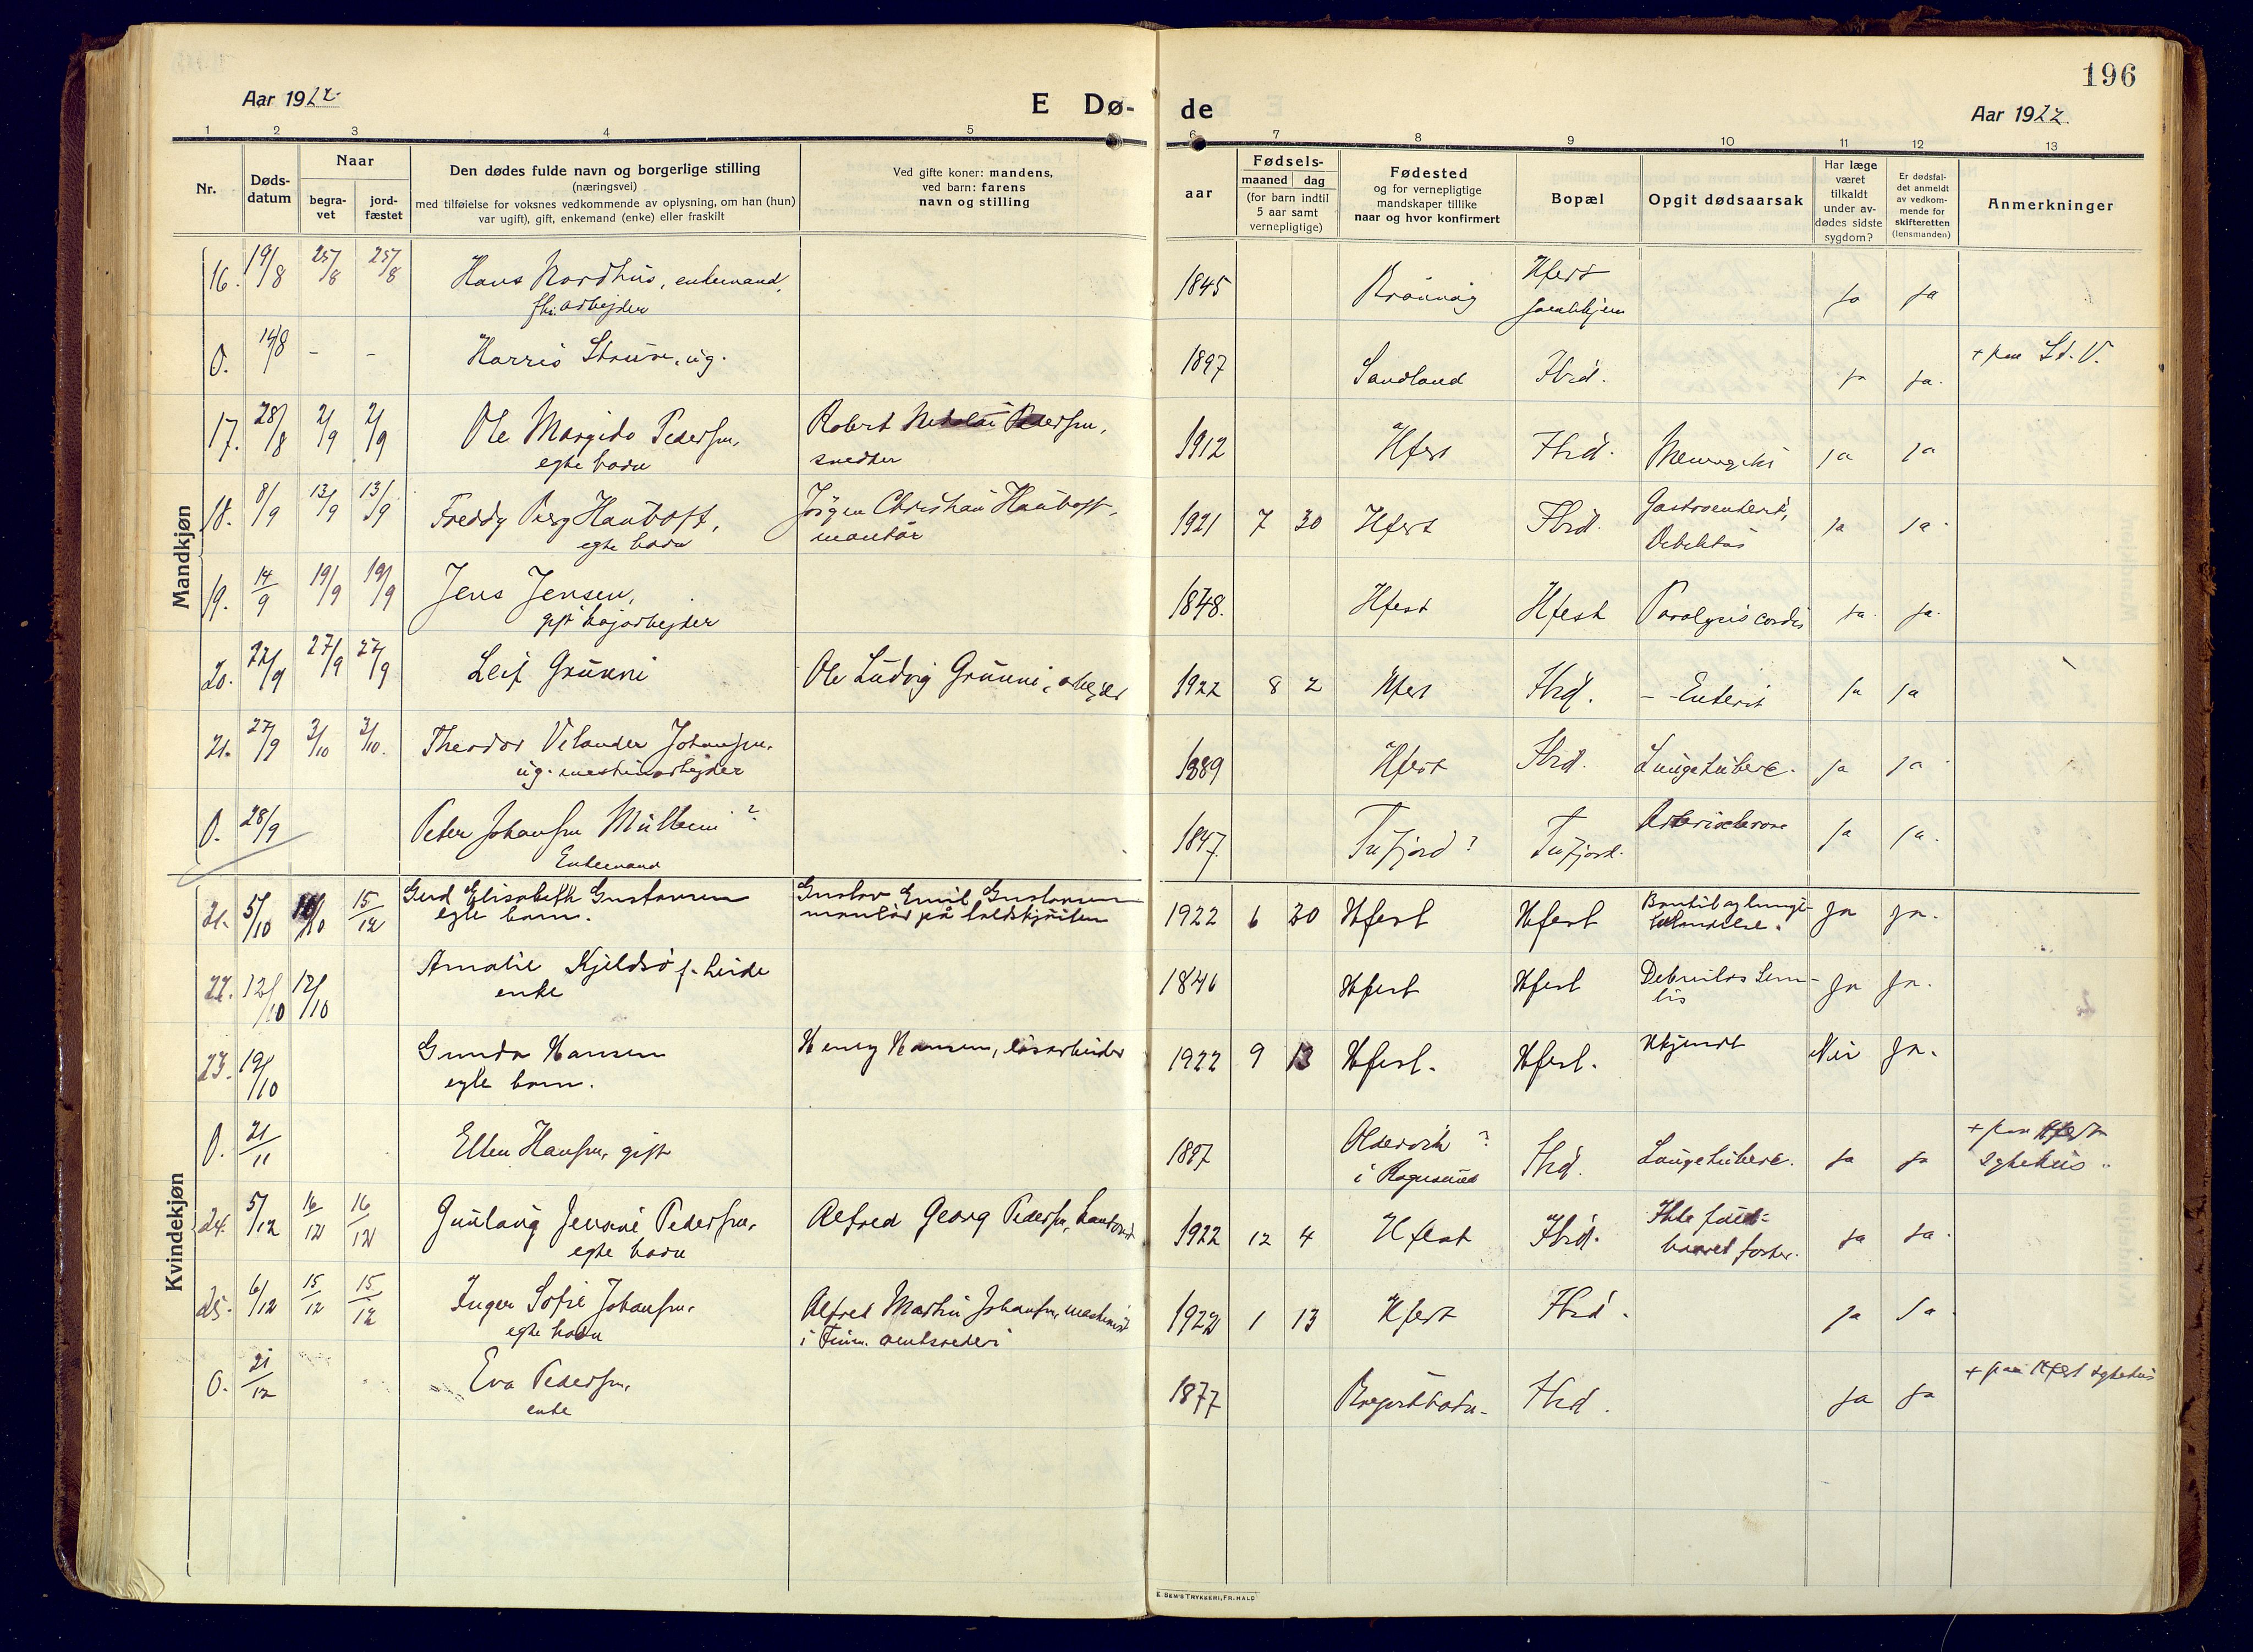 196
Aar 1922
E Dø-
de
Aar 1922.
1 2 3 4 5 6 7 8 9 10 11 12 13
Nr.
Døds-
datum
Naar
begra-
vet
jord-
fæstet
Den dødes fulde navn og borgerlige stilling
(næringsvei)
med tilføielse for voksnes vedkommende av oplysning, om han (hun)
var ugift), gift, enkemand (enke) eller fraskilt
Ved gifte koner: mandens,
ved barn: farens
navn og stilling
aar
Fødsels-
maaned dag
(for barn indtil
5 aar samt
vernepligtige)
Fødested
og for vernepligtige
mandskaper tillike
naar og hvor konfirmert
Bopæl
Opgit dødsaarsak
Har læge
været
tilkaldt
under av-
dødes sidste
sygdom?
Er dødsfal-
det anmeldt
av vedkom-
mende for
skifteretten
(lensmanden)
Anmerkninger
Mandkjøn
16. 19/8 25/8 25/8 Hans Nordhus, enkemand, 1845 Hfest ja ja
fhv. arbejder
0. 14/8 - - Harris ug. 1897 Sandland Ibid. ja ja. + paa St. V.
17. 28/8 2/9 2/9 Ole Margido Pedersen, Robert Nikolai Pedersen, 1912 Hfest Ibid. ja ja
egte barn snedker
18. 8/9 13/9 13/9 Freddy Berg Hauboff, Jörgen Christian Hauboff, 1921 7 30 Hfest Ibid. Gastroenterit, ja ja.
egte barn montör
19. 14/9 19/9 19/9 Jens Jensen, 1848. Hfest Hfest Paralysis cordis ja. ja.
gift kajarbejder
20. 22/9 27/9 27/9 Leif Grunni Ole Ludvig Grunni, arbejder 1922 8 2 Hfest Ibid. - Enterit ja ja
21. 27/9 3/10 3/10. Theodor Velander Johansen, 1889 Hfest Ibid. Lungetuberc. ja ja
ug. maskinarbejder
0. 28/9 Peter Johansen ? 1847. Tufjord? Tufjord. ja ja.
Enkemand
Kvindekjøn
21. 5/10 15/12 Gerd Elisabeth Gustavsen Gustav Emil Gustavsen 1922 6 20 Hfest Hfest Ja Ja.
egte barn. montör på
22. 12/10 12/10 Amalie Kjeldsö f. Linde 1846 Hfest Hfest Ja Ja.
enke
23. 19/10 Gunda Hansen Henry Hansen, lösarbeider 1922 9 13 Hfest. Hfest. Ukjendt Nei Ja.
egte barn.
0. 21/11 Ellen Hansen, gift 1897 ? Ibid. Lungetuberc. ja ja + paa Hfest
i sykehus
24. 5/12 16/12 16/12 Gunlaug Jensine Pedersen, Alfred Georg Pedersen, 1922 12 4 Hfest Ibid. Ikke fuld- ja ja.
egte barn baaret foster.
25. 6/12 15/12 15/12 Inger Sofie Johansen, Alfred Martin Johansen, maskinist 1922 1 13 Hfest Ibid. ja ja
egte barn i Finm.
0. 21/12 Eva Pedersen, 1877 Ibid. ja ja + paa Hfest sykehus
enke
E. SEM'S TRYKKERI, FR.HALD